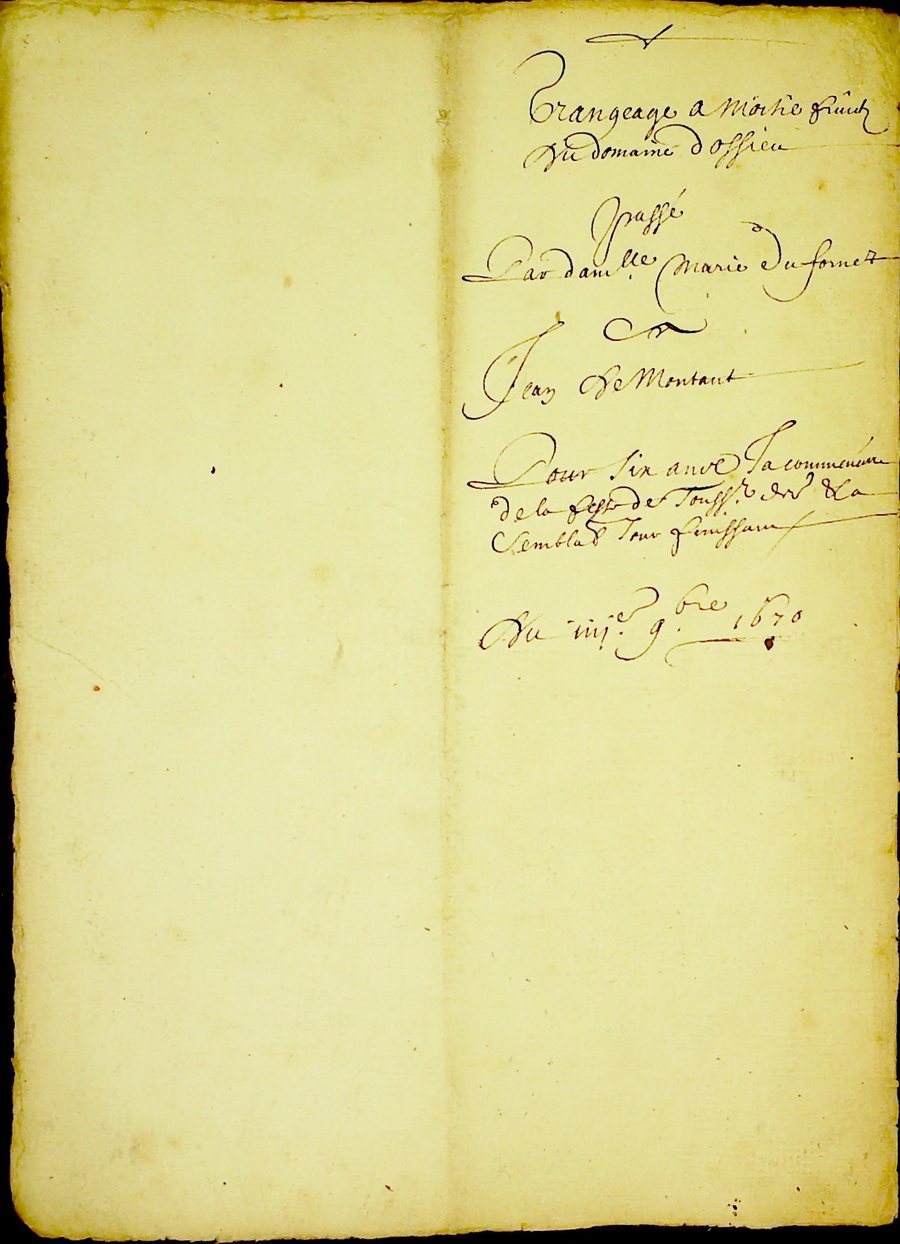 Grangeage a Moitie fruictz
Du domaine d'Ossieu
passé
Par dam.lle Marie Du fornet
A
Jean De Montaut
Pour Six ans Ja commencé
de la feste de Touss.ts der.r & a
Semblab. Jour finissant
Du iiij.e 9.bre 1670